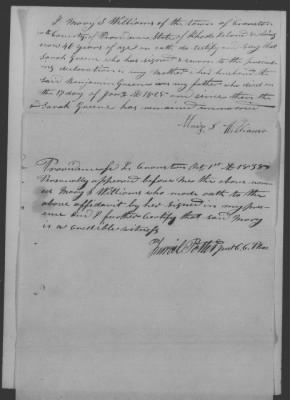 I Mary S Williams of the town of Cranston
County of Providence State of Rhode Island
41 years of age on oath do certify and say that
Sarah Greene who has signed & sworn to the
declaration is my mother & her husband the
said Benjamin Greene was my father who died on
the 17 day of 1825 and since then the
Sarah Greene has remained unmarried
Mary S Williams
Providence Sc Cranston 1st 1838
Personally appeared before me the above
Mary S Williams who made oath to the
above affidavit by her signed in my
and I further certify that said Mary
is a credible witness